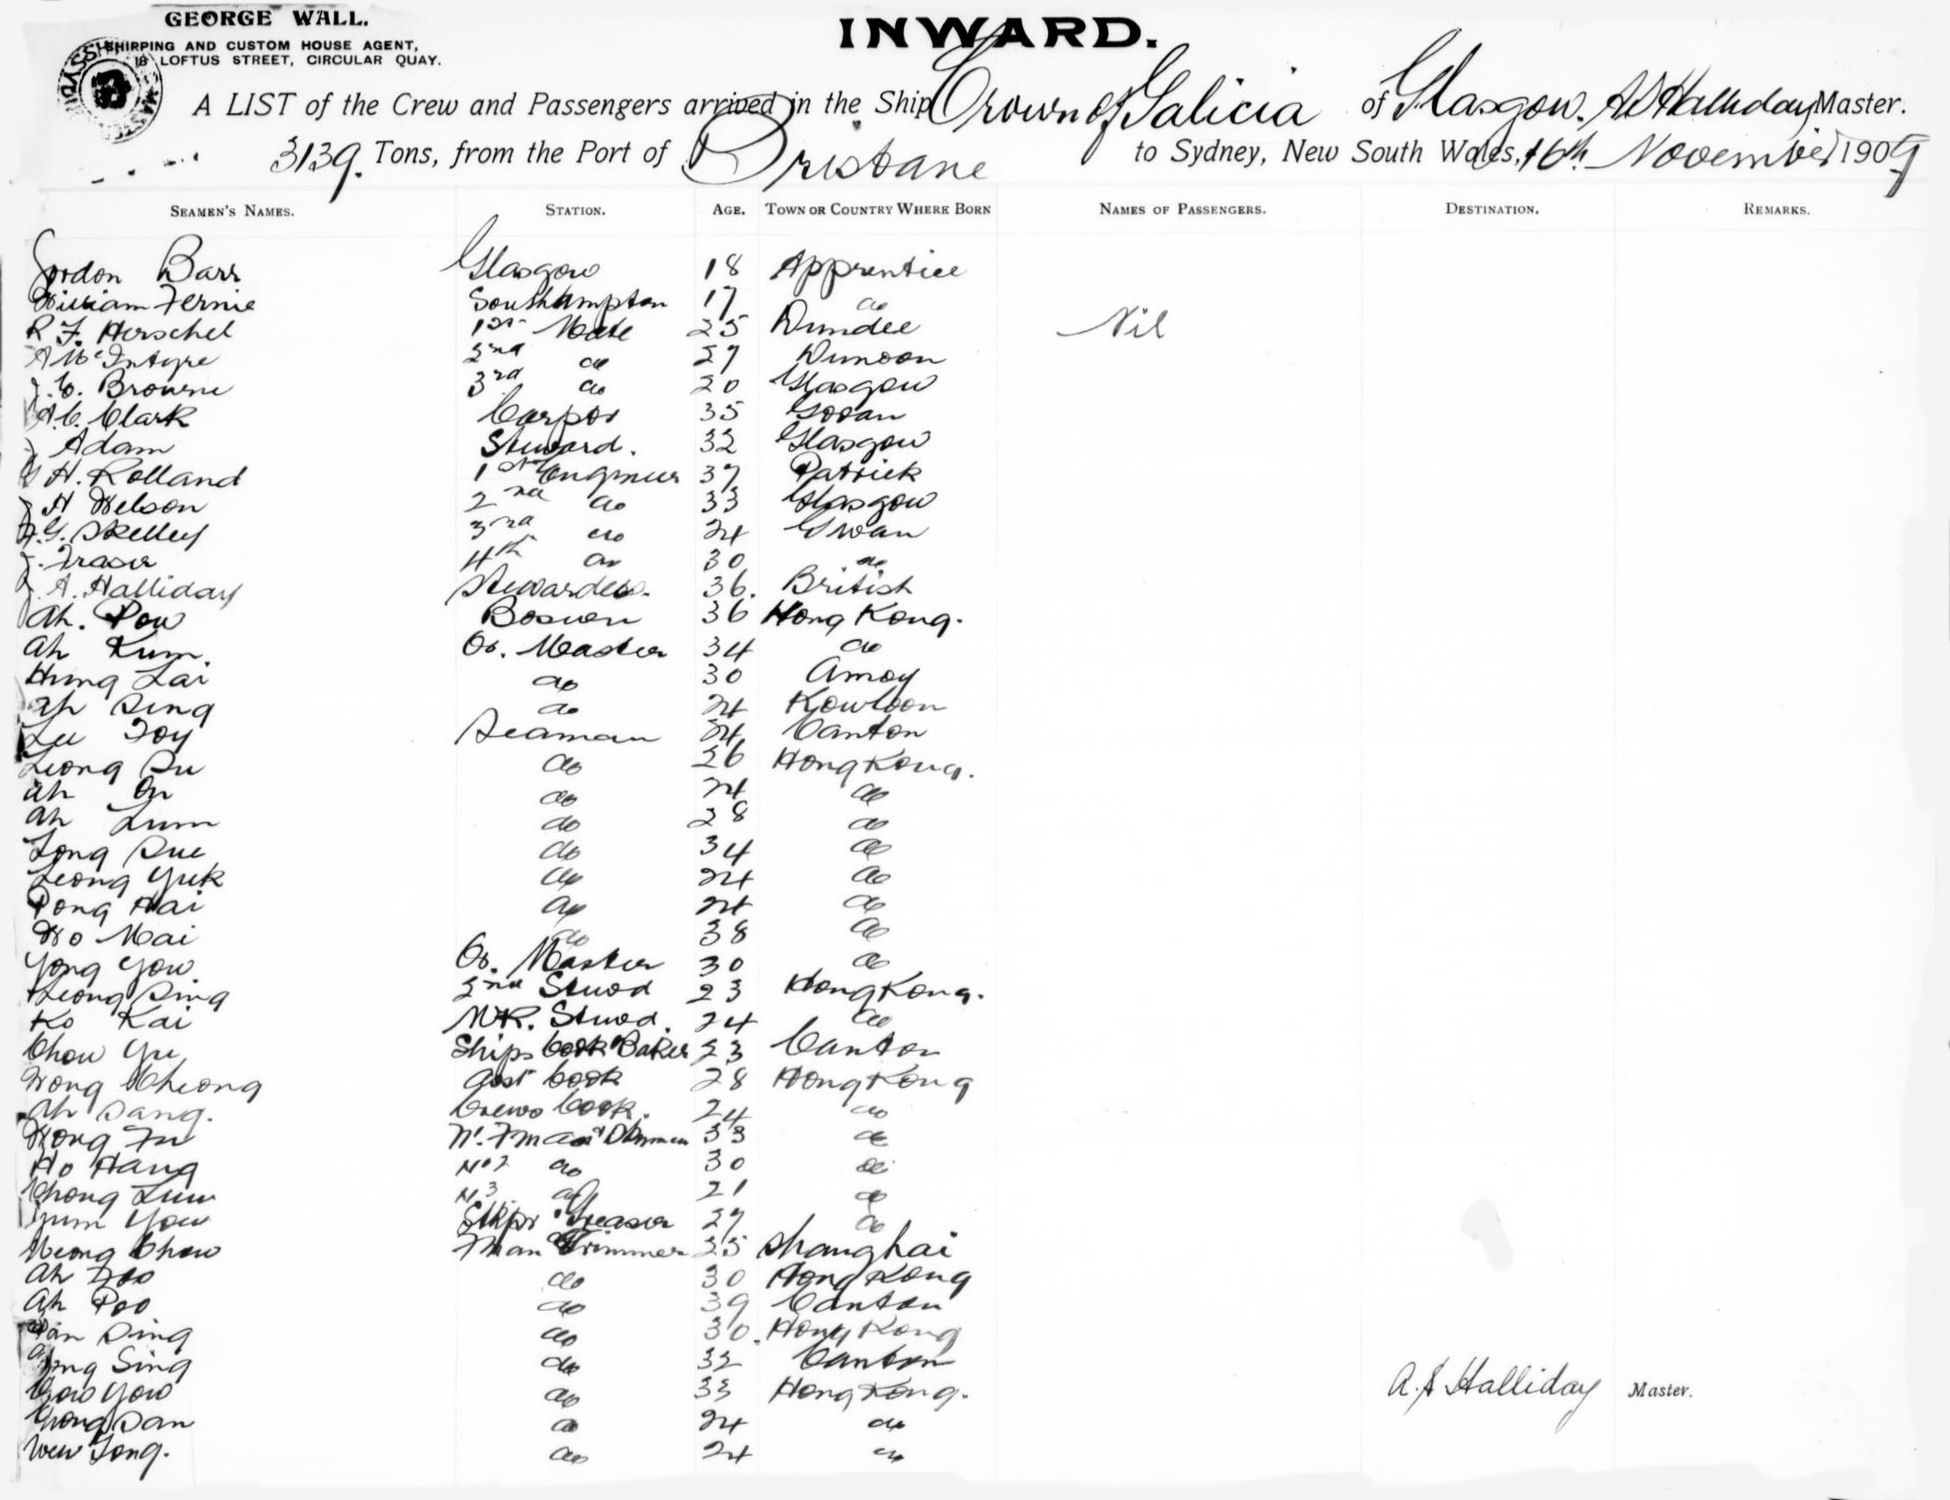 GEORGE WALL.
SHIPPING AND CUSTOM HOUSE AGENT,
18 LOFTUS STREET, CIRCULAR QUAY.
INWARD.
A LIST of the Crew and Passengers arrived in the Ship Crown of Galicia of Glasgow. A S Halliday Master.
3139. Tons, from the Port of Brisbane to Sydney, New South Wales, 16th November 1909
SEAMEN'S NAMES. STATION. AGE. TOWN OR COUNTRY WHERE BORN NAMES OF PASSENGERS. DESTINATION. REMARKS.
Gordon Barr Glasgow 18 Apprentice
William Fernie Southampton 17 do
R F. Herschel 1st Mate 25 Dundee Nil
A McIntyre 2nd do 27 Dunoon
J. C. Browne 3rd do 20 Glasgow
A. C. Clark Carpdr 35 Govan
J Adam Steward. 32 Glasgow
H. Rolland 1st Engineer 37 Patrick
J H Nelson 2nd do 33 Glasgow
A. G. Skelley 3rd do 24 Govan
J. Fraser 4th do 30 do
J. A. Halliday Stewardess. 36. British
Ah. Pow Bosun 36 Hong Kong.
Ah Kum. Qr. Master 34 do
Hung Lai do 30 Amoy
Ah Sing do 24 Kowloon
Lee Foy Seaman 24 Canton
Leong Su do 26 Hong Kong.
Ah On do 24 do
Ah Lum do 28 do
Long Sue do 34 do
Leong Yuk do 24 do
Pong Hai do 24 do
Ho Mai do 38 do
Yong Yow Qr. Master 30 do
Leong Sing 2nd Stwd 23 Hong Kong.
Ko Kai M.R. Stwd. 24 do
Chow Yu Ships Cook & Baker 23 Canton
Wong Cheong Asst Cook 28 Hong Kong
Ah Sang. Crews Cook. 24 do
Wong Fu N1. Fman & Dkyman 33 do
Ho Hang No 2 do 30 do
Chong Lum N. 3 do 21 do
Yum Yow Stkpr & Greaser 27 do
Meong Chow Fman & Trimmer 25 Shanghai
Ah Foo do 30 Hong Kong
Ah Poo do 39 Canton
Sing do 30. Hong Kong
Sing do 32 Canton
Yow do 33 Hong Kong.
San do 24 do
Tong. do 24 do
A. S Halliday Master.